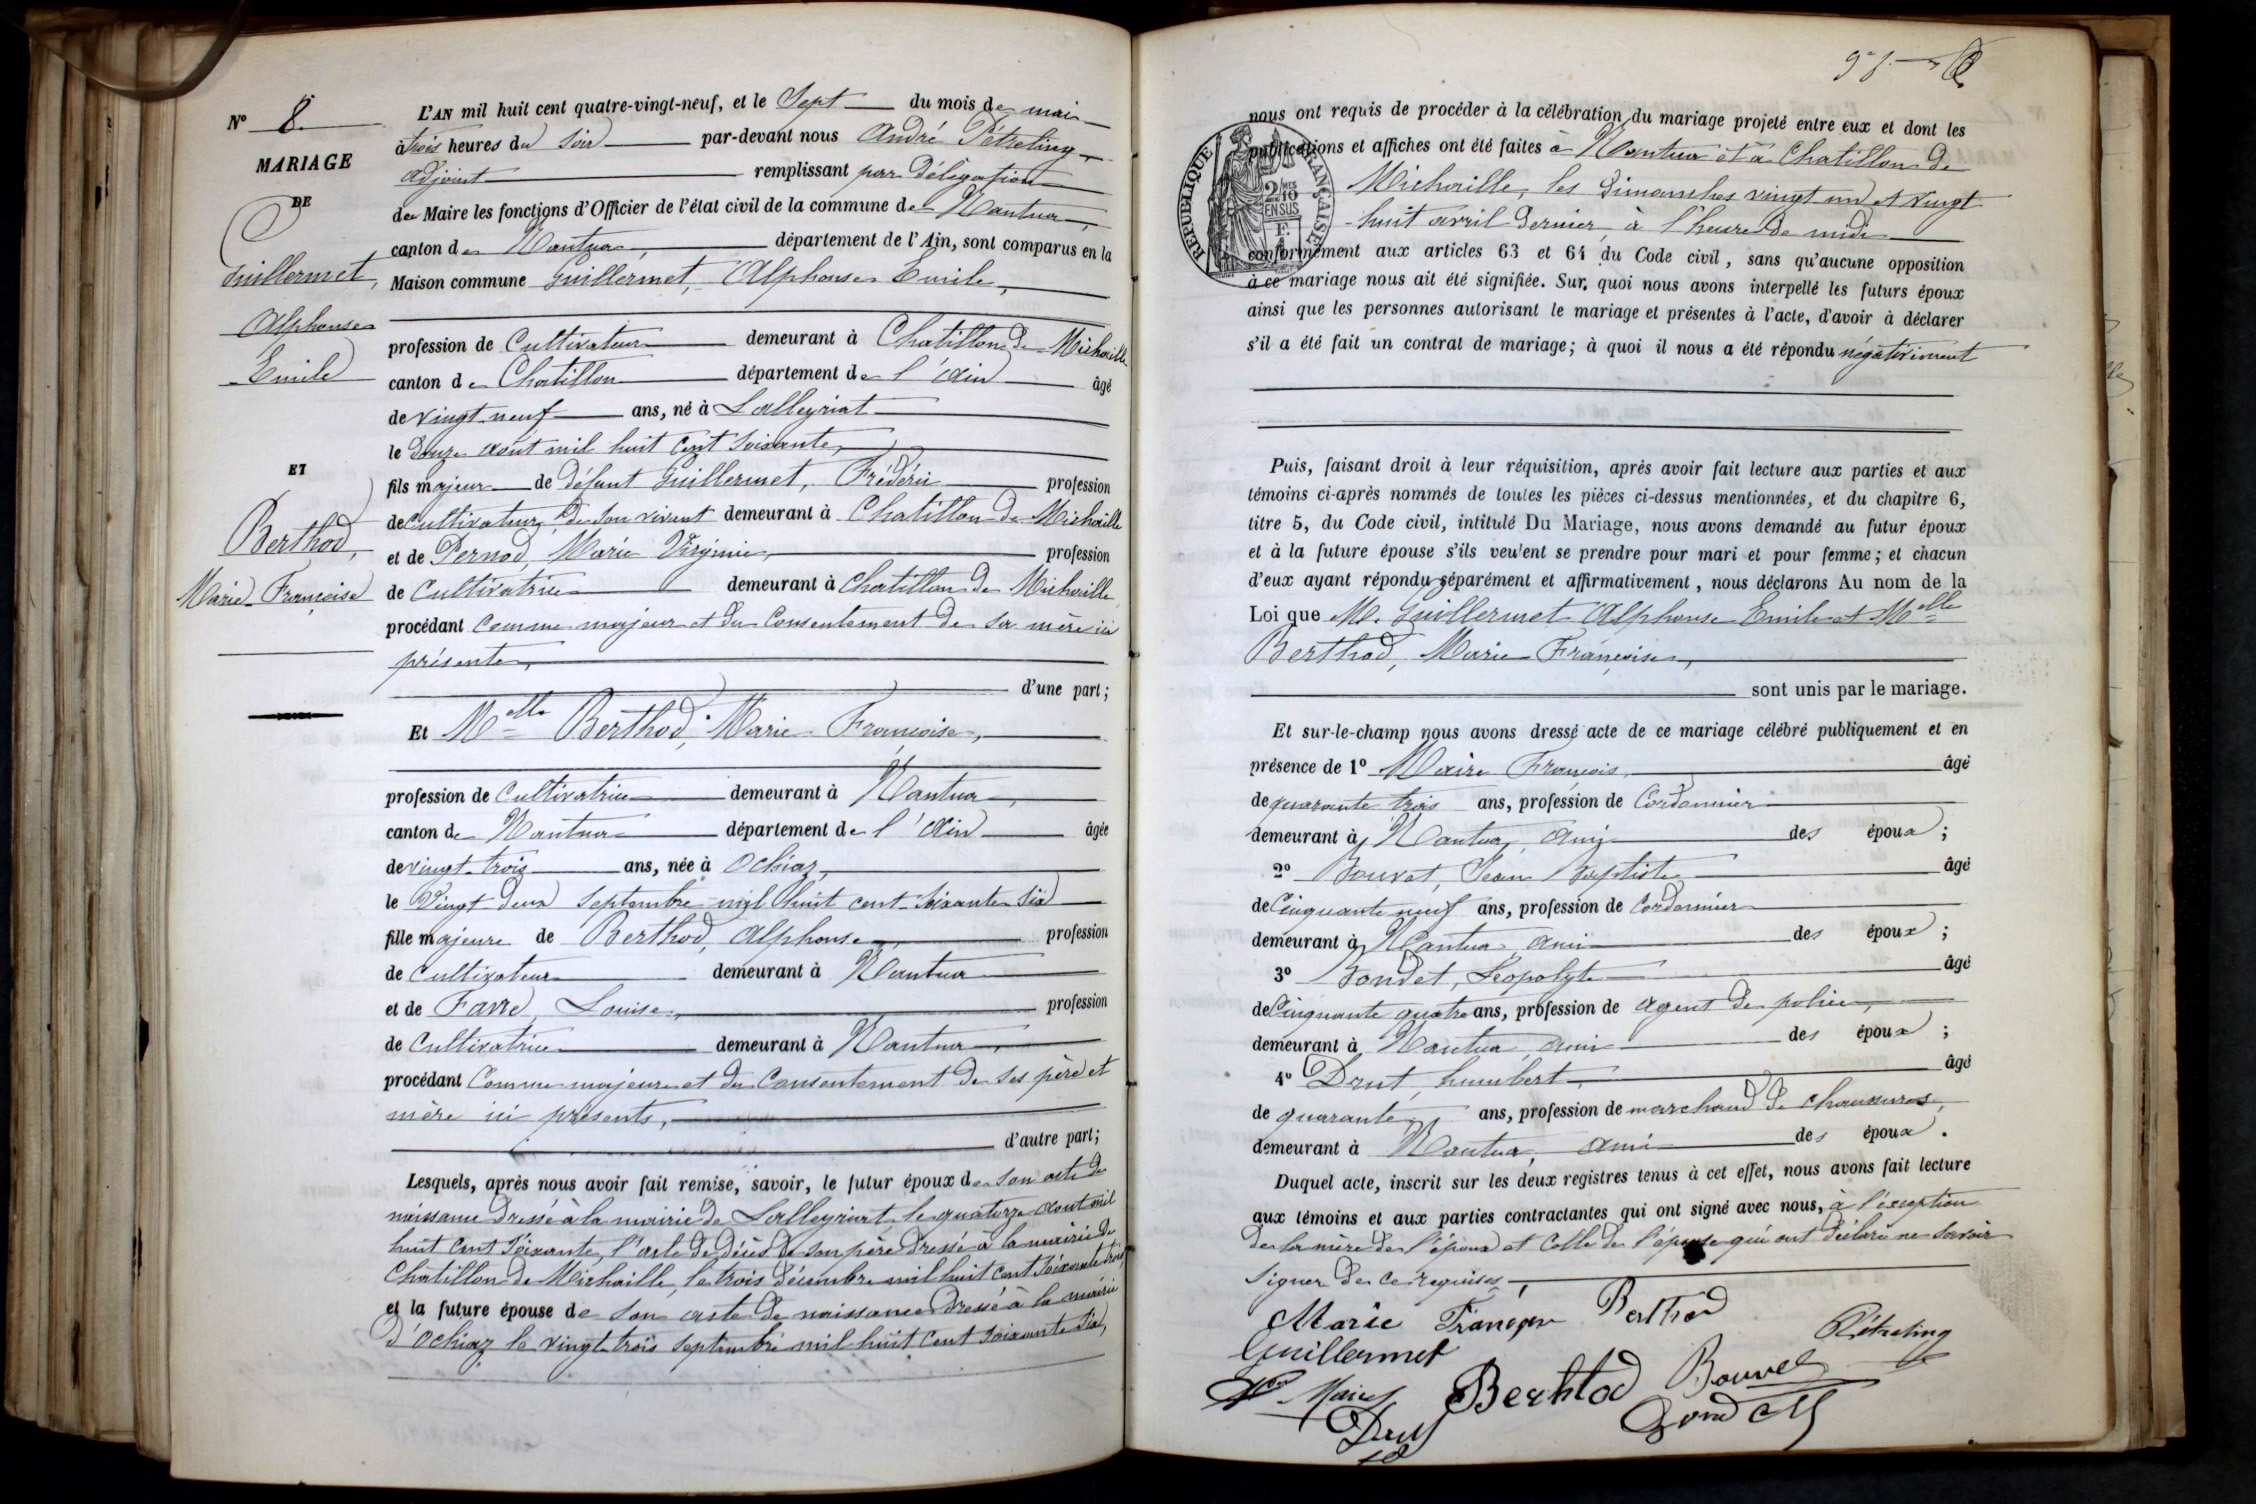 N° 8.
MARIAGE
DE
Guillermet,
Alphonse
Emile
ET
Berthod,
Marie Françoise
L'AN mil huit cent quatre-vingt-neuf, et le Sept du mois de mai
à trois heures du soir par-devant nous André Pétreling,
adjoint remplissant par délégation
de Maire les fonctions d'Officier de l'état civil de la commune de Nantua,
canton de Nantua, département de l'Ain, sont comparus en la
Maison commune Guillermet, Alphonse Emile,
profession de Cultivateur demeurant à Chatillon de Michaille
canton de Chatillon département de l'Ain âgé
de vingt neuf ans, né à Lalleyriat
le douze août mil huit cent soixante,
fils majeur de défunt Guillermet, Frédéric profession
de cultivateur, de son vivant demeurant à Chatillon de Michaille
et de Pernod, Marie Virginie, profession
de Cultivatrice demeurant à Chatillon de Michaille
procédant comme majeur et du consentement de sa mère ici
présente,
d'une part;
Et Melle Berthod, Marie Françoise,
profession de Cultivatrice demeurant à Nantua,
canton de Nantua département de l'Ain âgée
de vingt trois ans, née à Ochiaz,
le Vingt deux septembre mil huit cent soixante six
fille majeure de Berthod, Alphonse, profession
de Cultivateur demeurant à Nantua
et de Favre, Louise, profession
de Cultivatrice demeurant à Nantua,
procédant comme majeure et du consentement de ses père et
mère ici présents,
d'autre part;
Lesquels, après nous avoir fait remise, savoir, le futur époux de son acte de
naissance dressé à la mairie de Lalleyriat le quatorze août mil
huit cent soixante, l'acte de décès de son père dressé à la mairie de
Chatillon de Michaille, le trois décembre mil huit cent soixante trois,
et la future épouse de son acte de naissance dressé à la mairie
d'Ochiaz le vingt trois septembre mil huit cent soixante six,
nous ont requis de procéder à la célébration du mariage projeté entre eux et dont les
publications et affiches ont été faites à Nantua et à Chatillon de
Michaille, les dimanches vingt un et vingt
huit avril dernier, à l'heure de midi
conformément aux articles 63 et 64 du Code civil, sans qu'aucune opposition
à ce mariage nous ait été signifiée. Sur quoi nous avons interpellé les futurs époux
ainsi que les personnes autorisant le mariage et présentes à l'acte, d'avoir à déclarer
s'il a été fait un contrat de mariage; à quoi il nous a été répondu négativement
RÉPUBLIQUE FRANÇAISE
2/10 EN SUS
Puis, faisant droit à leur réquisition, après avoir fait lecture aux parties et aux
témoins ci-après nommés de toutes les pièces ci-dessus mentionnées, et du chapitre 6,
titre 5, du Code civil, intitulé Du Mariage, nous avons demandé au futur époux
et à la future épouse s'ils veulent se prendre pour mari et pour femme; et chacun
d'eux ayant répondu séparément et affirmativement, nous déclarons Au nom de la
Loi que M. Guillermet Alphonse Emile et Melle
Berthod, Marie Françoise,
sont unis par le mariage.
Et sur-le-champ nous avons dressé acte de ce mariage célébré publiquement et en
présence de 1° Maire François, âgé
de quarante trois ans, profession de Cordonnier
demeurant à Nantua, ami des époux;
2° Bouvet, Jean Baptiste âgé
de Cinquante neuf ans, profession de Cordonnier
demeurant à Nantua ami des époux;
3° Bondet, Léopolyte âgé
de Cinquante quatre ans, profession de agent de police,
demeurant à Nantua ami des époux;
4° Drut, humbert, âgé
de quarante ans, profession de marchand de chaussures,
demeurant à Nantua, ami des époux.
Duquel acte, inscrit sur les deux registres tenus à cet effet, nous avons fait lecture
aux témoins et aux parties contractantes qui ont signé avec nous, à l'exception
de la mère de l'époux et celle de l'épouse qui ont déclaré ne savoir
signer de ce requises.
Marie Berthod
Guillermet Pétreling
Maire Berhtod Bouvet
Drut